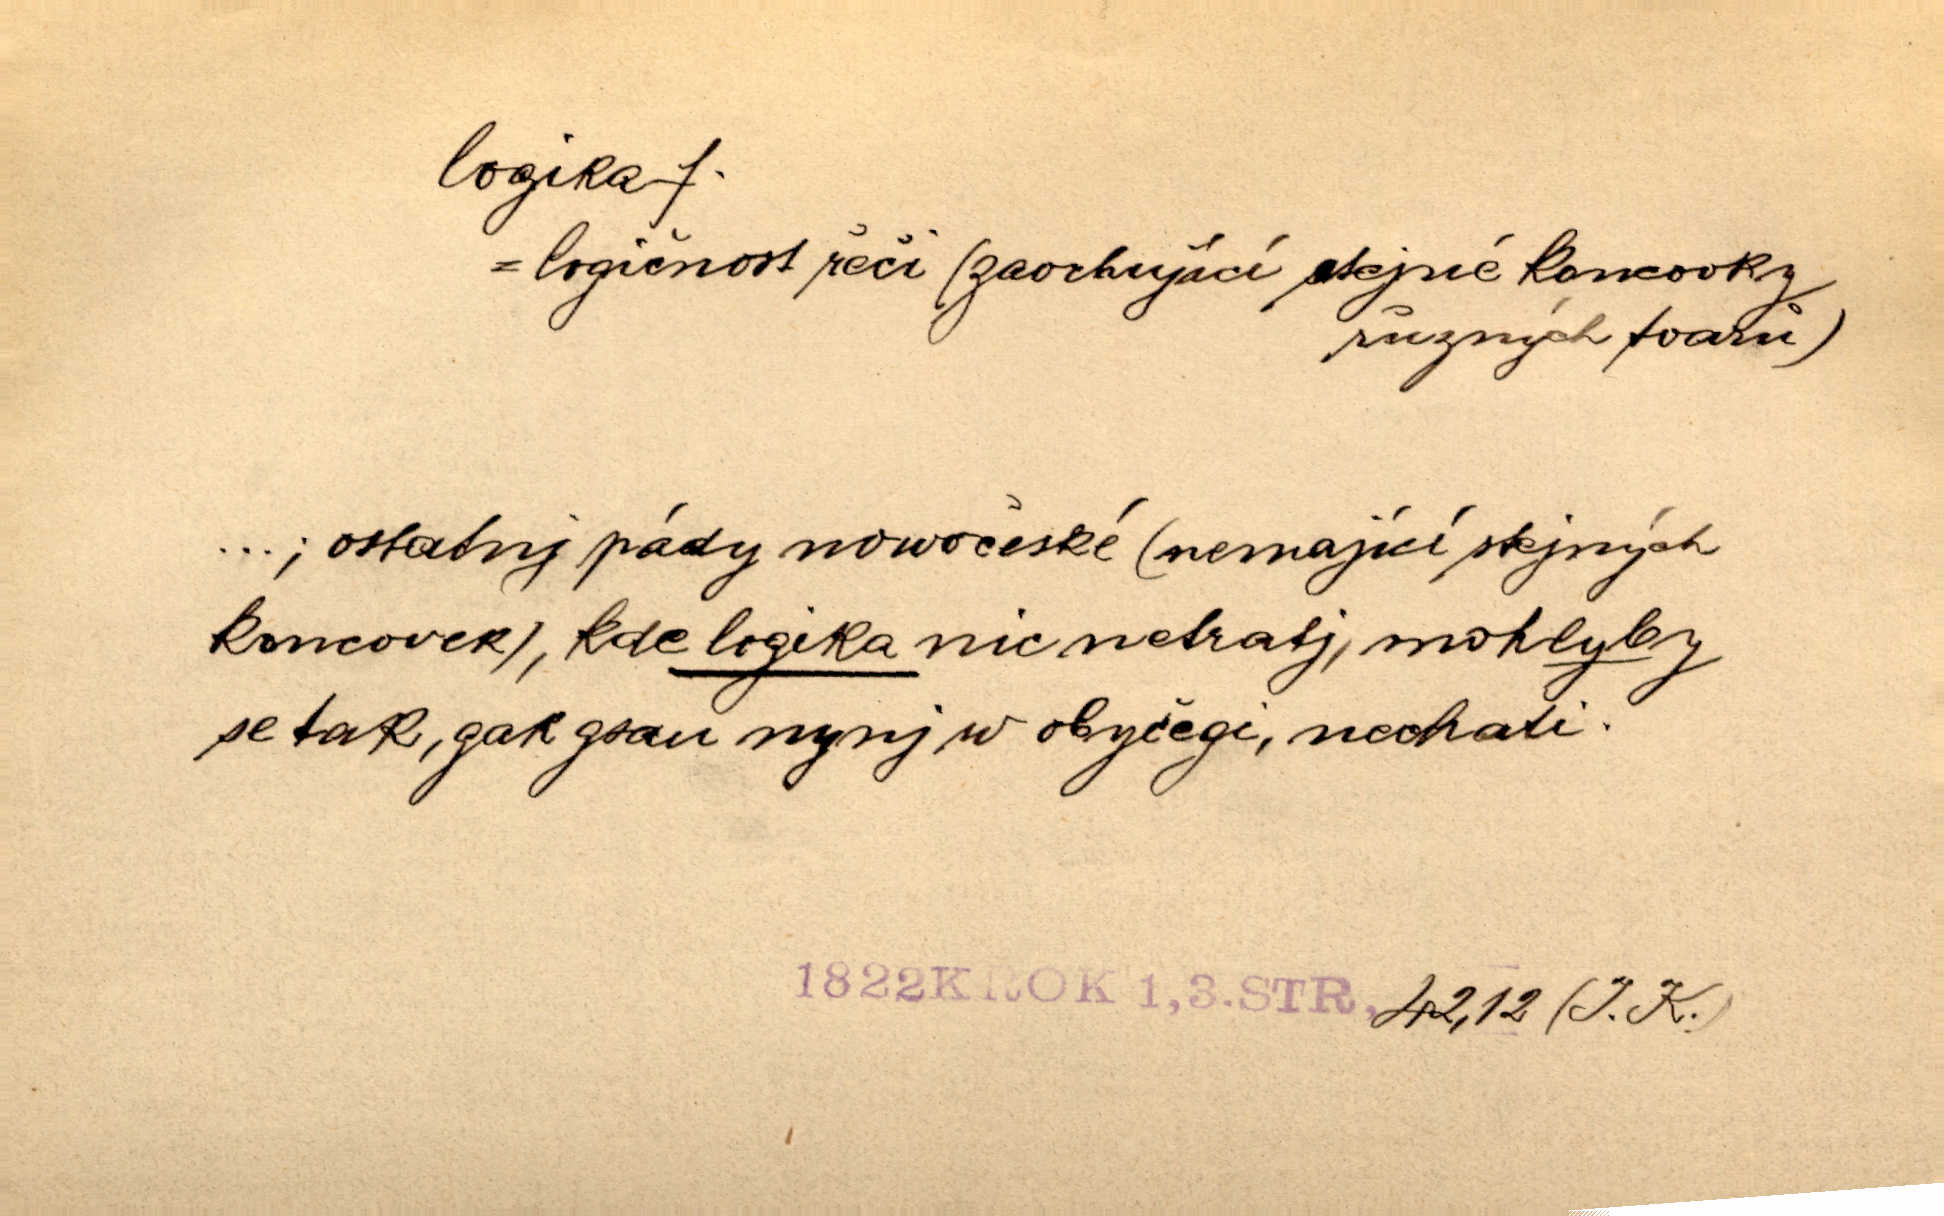 logika f.
= logičnost řeči (zaochující stejné koncovky
různých tvarů)
...; ostatnj pády nowočeské (nemající stejných
koncovek), kde logika nic netratj, mohlyby
se tak, gak gsau nynj w obyčegi, nechati.
1822 KROK 1,3. STR, 42,12 (J. K.)